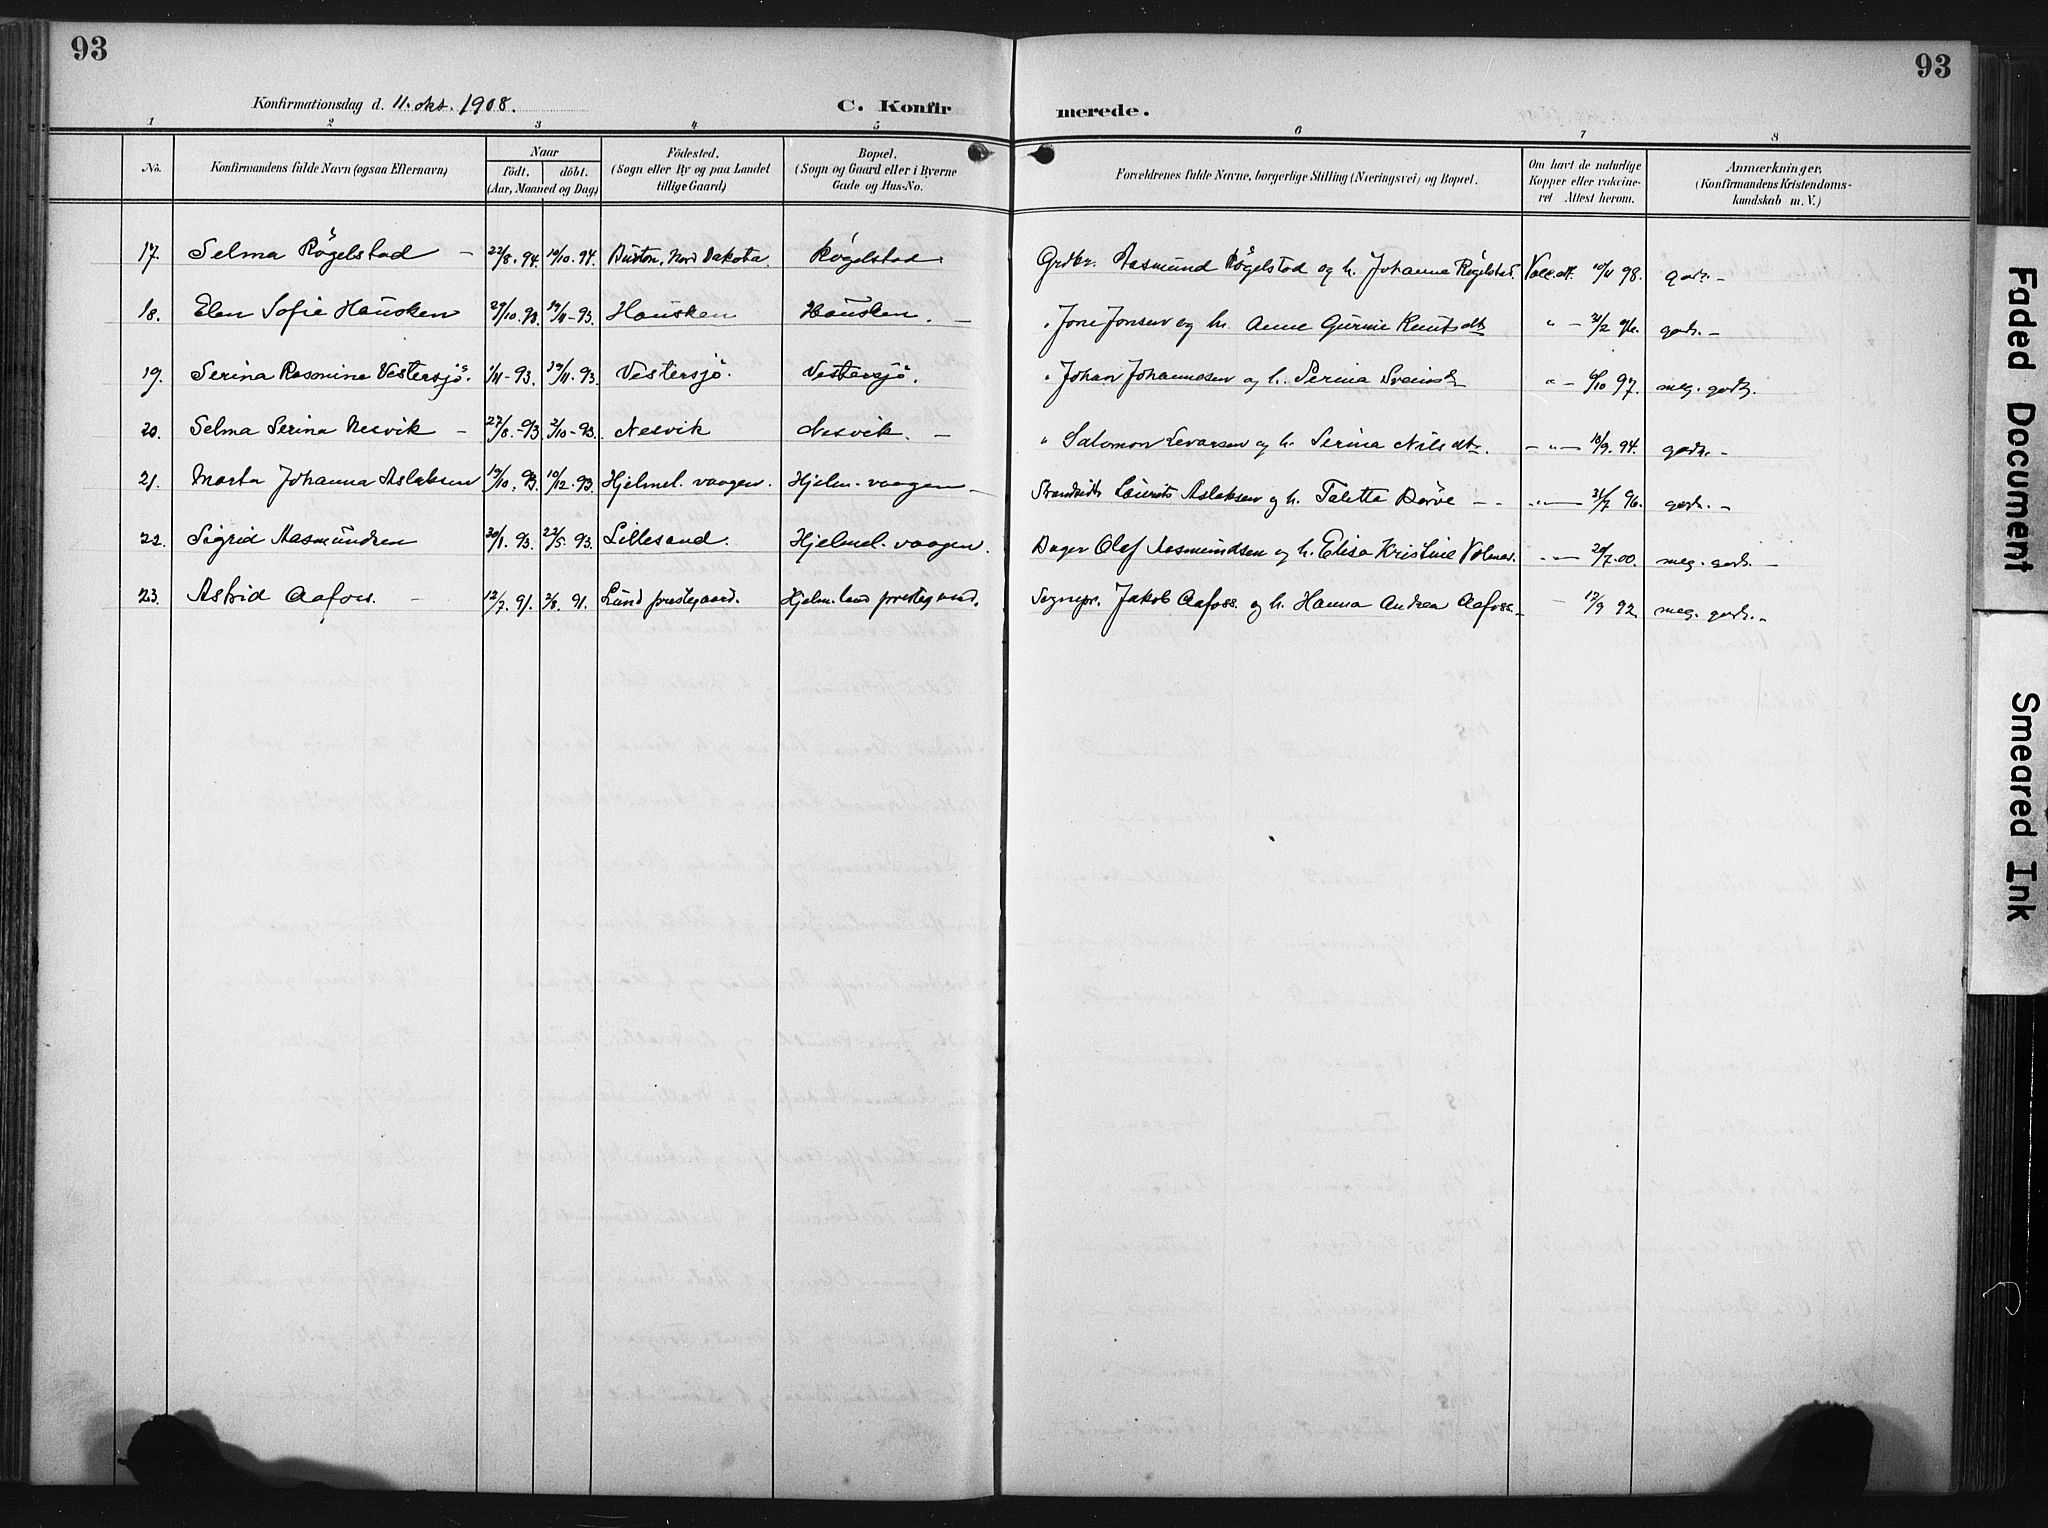 93
93
Konfirmationsdag d. 11. okt. 1908.
C. Konfir
merede.
1 2 3 4 5 6 7 8
No.
Konfirmandens fulde Navn (ogsaa Efternavn)
Naar
födt. döbt.
(Aar, Maaned og Dag)
Födested.
(Sogn eller By og paa Landet
tillige Gaard)
Bopæl.
(Sogn og Gaard eller i Byerne
Gade og Hus-No.
Forældrenes fulde Navne, borgerlige Stilling (Næringsvei) og Bopæl.
Om havt de naturlige
Kopper eller vakcine-
ret Attest herom.
Anmærkninger.
(Konfirmandens Kristendoms-
kundskab m. V.)
17. Selma Rögelstad – 22/8. 94. 14/10. 94. Buxton, Nord Dakota. Rögelstad Grdbr. Aasmund Rögelstad og h. Johanna Rögelstad. Vacc. att. 10/11 98. godt. –
18. Elen Sofie Hausken 29/10. 93. 19/11 – 93. Hausken Hausken. – " Jone Jonsen og h. Anne Gurine Knutsdtr " – 31/2 96. godt. –
19. Serina Rasmine Vestersjö. 1/11 – 93. 19/11. 93. Vestersjö. Vestersjö. " Johan Johannesen og h. Serina Svensdtr " – 6/10 97. meg. godt.
20. Selma Serina Nesvik – 27/8. – 93 2/10 – 93. Nesvik Nesvik. – " Salomon Sevarsen og h. Serina Nilsdtr. – " – 18/9. 94. godt. –
21. Marta Johanna Aslaksen 19/10. 93. 10/12 – 93. Hjelmel. vaagen. Hjelm. vaagen – Strandsidder Laurits Aslaksen og h. Talette Børve – – " – 31/7 96. godt. –
22. Sigrid Aasmundsen 30/1. 93. 22/5. 93. Lillesand. Hjelmel. vaagen. Bager Olaf Aasmundsen og h. Elisa Kristine Volmer. " – 20/7. 00. meg. godt. –
23. Astrid Aafoss. – 12/7. 91. 2/8. 91. Lund prestegaard. Hjelm.land prestegaard. Sognepr. Jakob Aafoss. og h. Hanna Andrea Aafoss – – 17/9 92. meg. godt. –
Faded Document
Smeared Ink